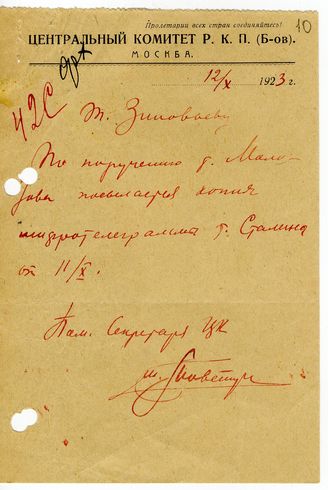 Пролетарии всех стран соединяйтесь!
10
ЦЕНТРАЛЬНЫЙ КОМИТЕТ Р. К. П. (Б-ов).
МОСКВА.
12/X 1923 г.
т. Зиновьеву
По поручению т. Моло-
това посылается копия
шифротелеграммы т. Сталина
от 11/X.
Пом. Секретаря ЦК